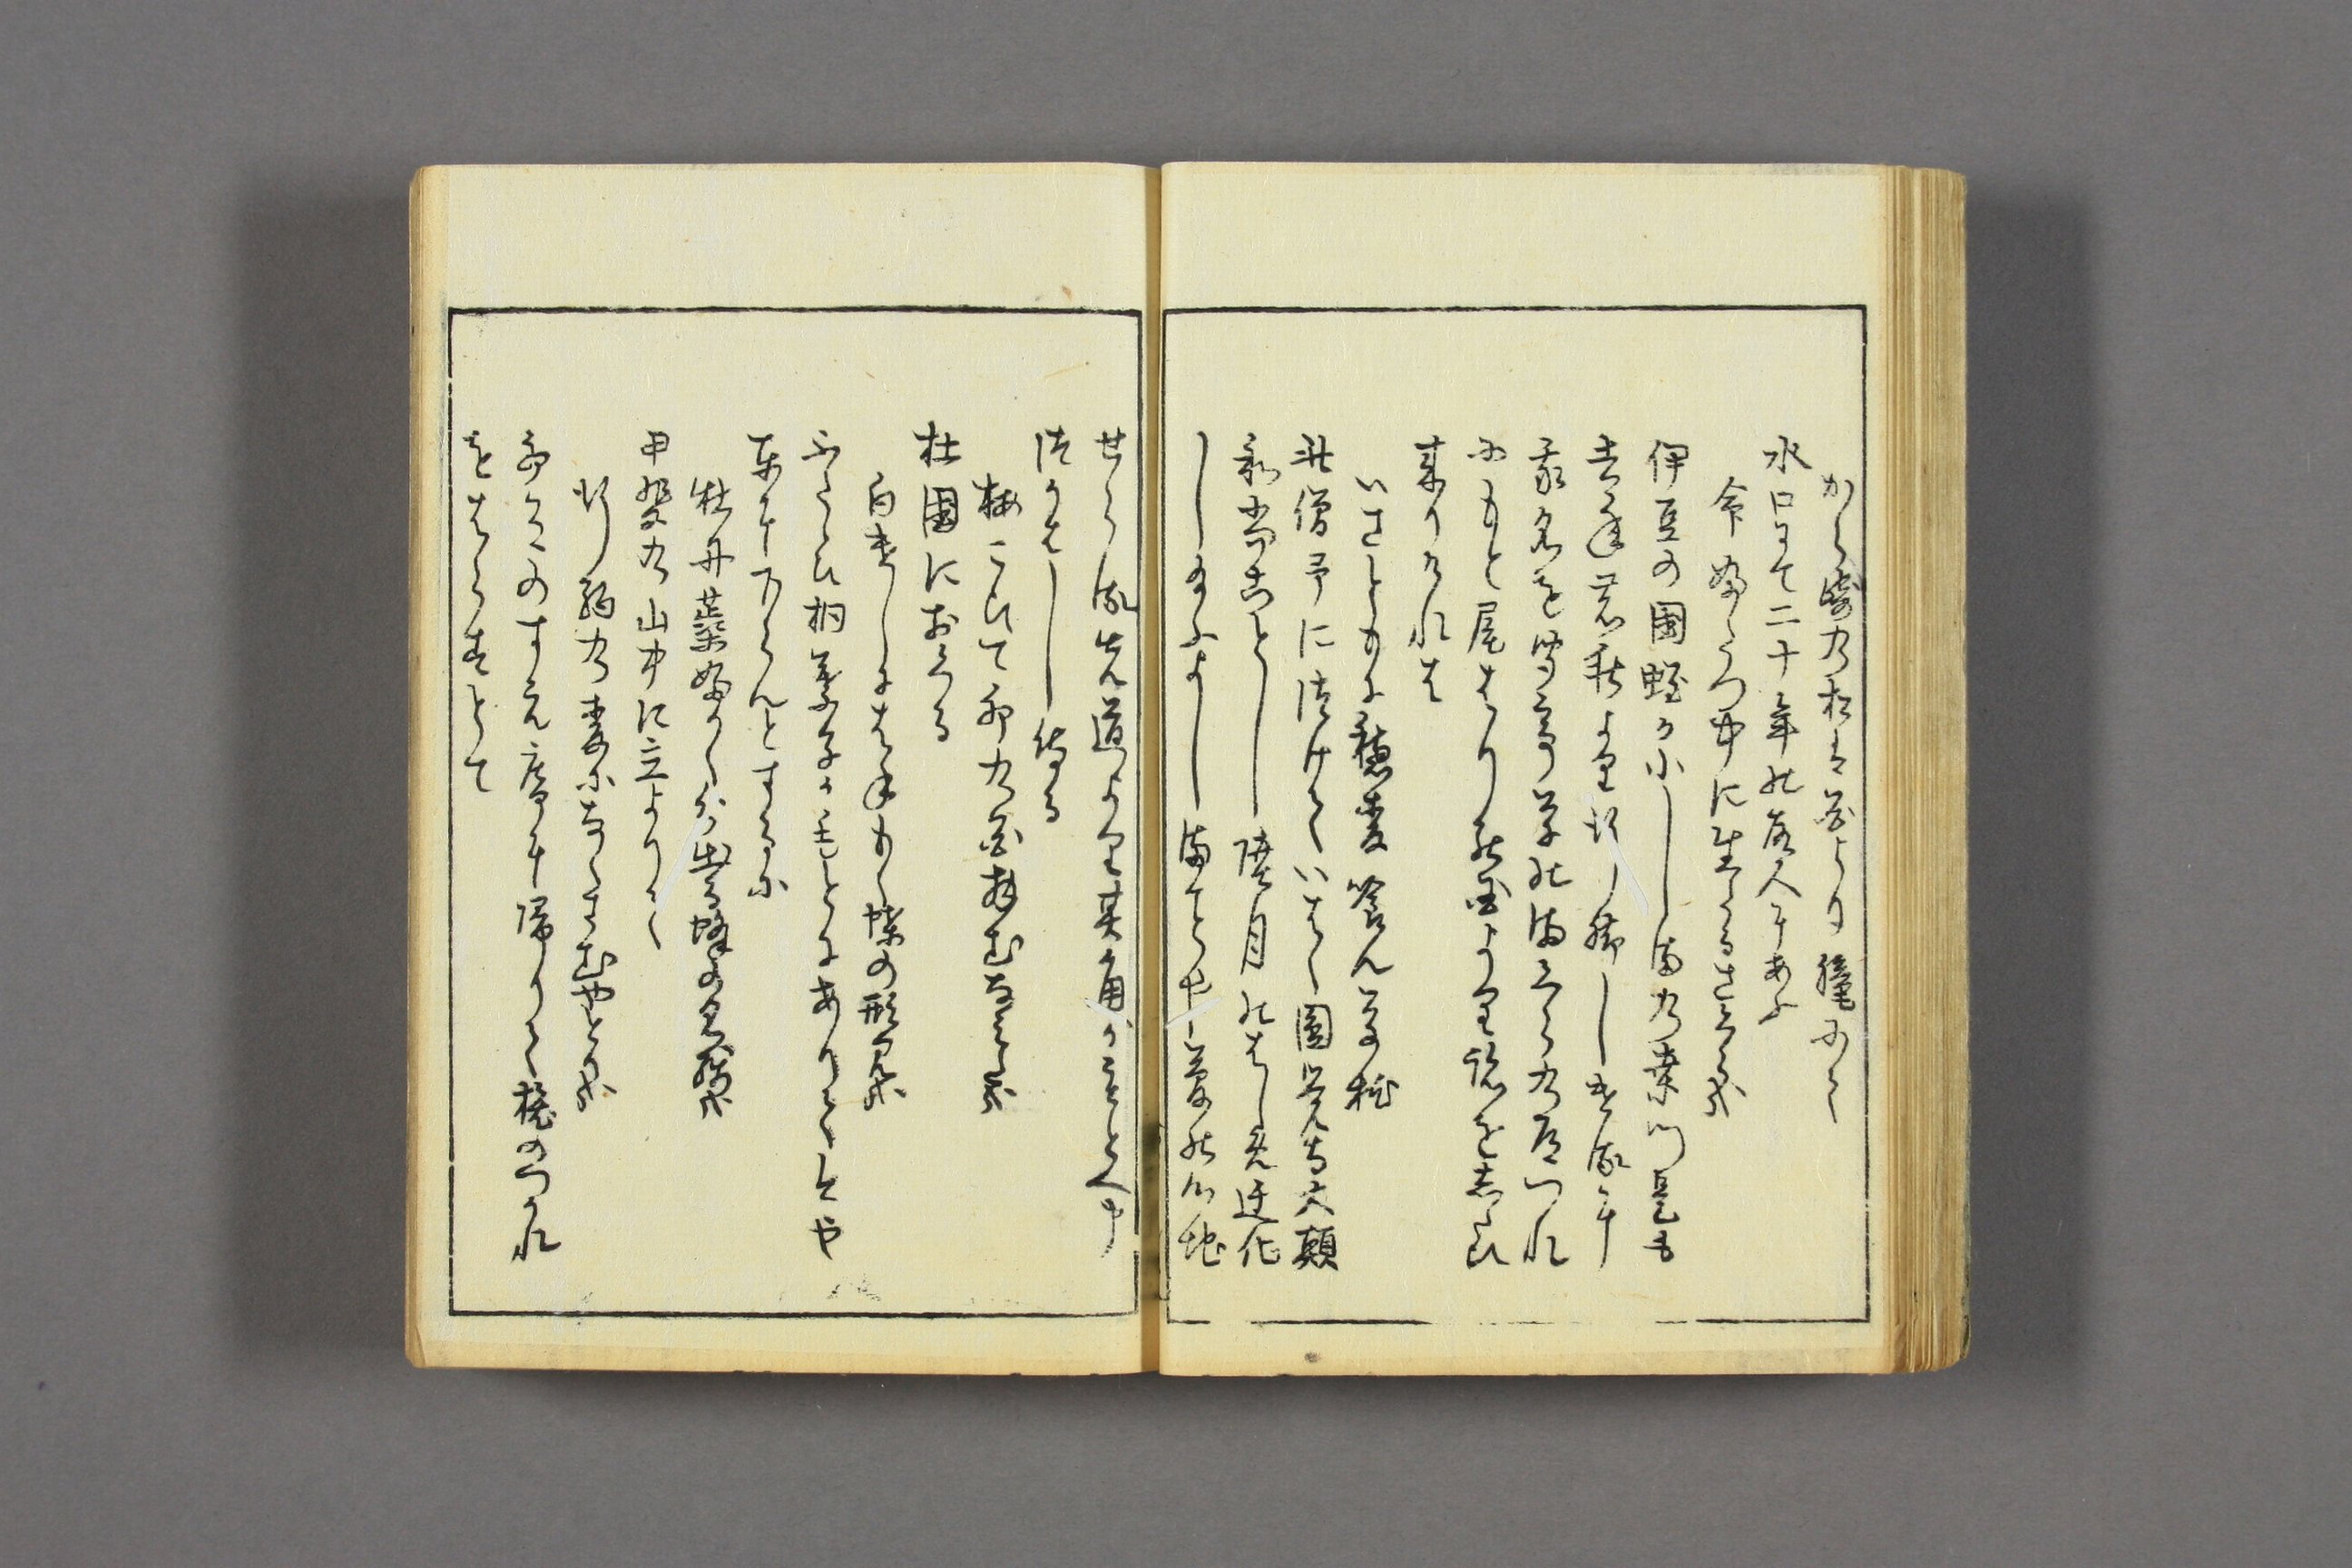 から崎の松は花より朧にて
水口にて二十年の故人にあふ
命ふたつ中に生たるさくら哉
伊豆の国蛭か小しまの桑門是も
去年の秋より行脚しけるに
我名を聞て草のまくらの道つれ
にもと尾はりの国より跡をしたひ
来りけれは
いさともに穂麦喰ん草枕
此僧予につけていはく圓覚寺大顛
和尚ことし睦月のはしめ迁化
し給ふよしまことや夢の心地
せらる先道より其角かもとへ申
つかはし侍る
梅こひて卯の花拝むなみた哉
杜国におくる
白けしにはねもく蝶の形見哉
ふたゝひ桐葉子かもとにありていまや
東に下らんとするに
牡丹蘂ふかく分出る蜂の名残哉
甲斐の山中に立よりて
行駒の麦になくさむやとり哉
卯月のすえ庵に帰りて旅のつかれ
をはらすとて